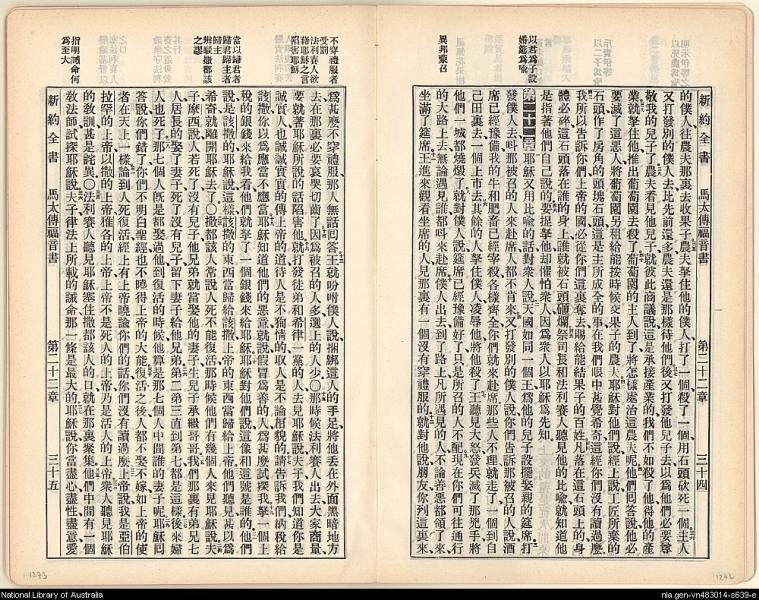 以君為子設
婚筵為喻
異邦蒙召
新約全書 馬太傳福音書 第二十二章 三十四
的僕人往農夫那裏去收果子農夫拏住他的僕人打了一個殺了一個用石頭砍死一個主人
又打發別的僕人去比先前還多農夫還是那樣待他們後又打發他兒子去說為他們必要尊
敬我的兒子了農夫看見他兒子就彼此商議說這是承接產業的我們不如殺了他得他的產
業就拏住他推出葡萄園去殺了葡萄園的主人到了將怎樣處治這農夫呢他們回答說他必
要滅了這惡人將葡萄園另租給能按時候交果子的農夫耶穌對他們說經上說工匠所棄的
石頭作了房角的頭塊石頭這是主所成全的事在我們眼中甚覺希奇這經你們沒有讀過麼
我所以告訴你們上帝的國必從你們這裏奪去賜給能結果子的百姓凡落在這石頭上的身
體必碎這石頭落在誰的身上誰就被石頭砸爛祭司長和法利賽人聽見他的比喻就知道他
是指著他們自己說的要捉拏他却懼怕衆人因為衆人以耶穌為先知
第二十二章 耶穌又用比喻的話對衆人說天國如同一個王為他的兒子設擺娶親的筵席打
發僕人去呌那被召的人來赴席人都不肯來又打發別的僕人說你們告訴那被召的人說酒
席已經豫備好了我的牛和肥畜已經宰殺各樣齊全你們就來赴席那些人不理就走了一個到自
己田裏去一個上巿去其餘的人拏住僕人凌辱他將他殺了王聽見大怒發兵滅了那兇手將
他們一城都燒燬了就對僕人說筵席已經豫備好了只是所召的人不配現在你們可往通行
的大路上去無論遇見誰都呌來赴席僕人出去到了路上凡所遇見的人不論善惡都領了來
坐滿了筵席王進來觀看坐席的人見那裏有一個沒有穿禮服的就對他說朋友你到這裏來
不穿禮服者
受罰
法利賽人欲
藉耶穌之言
陷害耶穌
當以歸君者
歸君歸主者
歸主
辨駁撒都該
之謬
指明誡命何
為至大
為甚麼不穿禮服那人無話回答王就吩咐僕人說捆綁這人的手足將他丟在外面黑暗地方
去在那裏必要哀哭切齒了因為被召的人多選上的人少○那時候法利賽人出去大家商量
要就著耶穌所說的話陷害他就打發徒弟和希律一黨的人去見耶穌說夫子我們知道你是
誠實人也誠誠實實的傳上帝的道待人是不徇情的收人是不論相貌的請告訴我們納稅給
該撒你以為應當不應當耶穌知道他們的惡意就說假冒為善的人為甚麼試探我拏一個上
稅的銀錢來給我看他們就拏了一個銀錢來給耶穌耶穌對他們說這像和這號是誰的他們
說是該撒的耶穌說這樣該撒的東西當歸給該撒上帝的東西當歸給上帝他們聽見甚以為
希奇就離開耶穌去了○撒都該人常說人死不能復活那時候他們有幾個人來見耶穌說夫
子摩西說人若死了沒有兒子他兄弟就當娶他的妻子生兒子承繼哥哥我們那裏有弟兄七
人居長的娶了妻子死了沒有兒子留下妻子給他兄弟第二第三直到第七都是這樣後來婦
人也死了那七個人既是都娶過他到復活的時候他是那七個人中間誰的妻子呢耶穌回
答說你們錯了你們不明白聖經也不曉得上帝的大能復活之後人都不娶不嫁如上帝的使
者在天上一樣論到人死復活經上有上帝曉諭你們的話你們沒有讀過麼上帝說我是亞伯
拉罕的上帝以撒的上帝雅各的上帝上帝不是死人的上帝乃是活人的上帝衆人聽見耶穌
的敎訓甚是詫異○法利賽人聽見耶穌塞住撒都該人的口就在那裏聚集他們中間有一個
敎法師試探耶穌說夫子律法上所載的誡命那一條是最大的耶穌說你當盡心盡性盡意愛
新約全書 馬太傳福音書 第二十二章 三十五
National Library of Australia
nla.gen-vn483014-s639-e